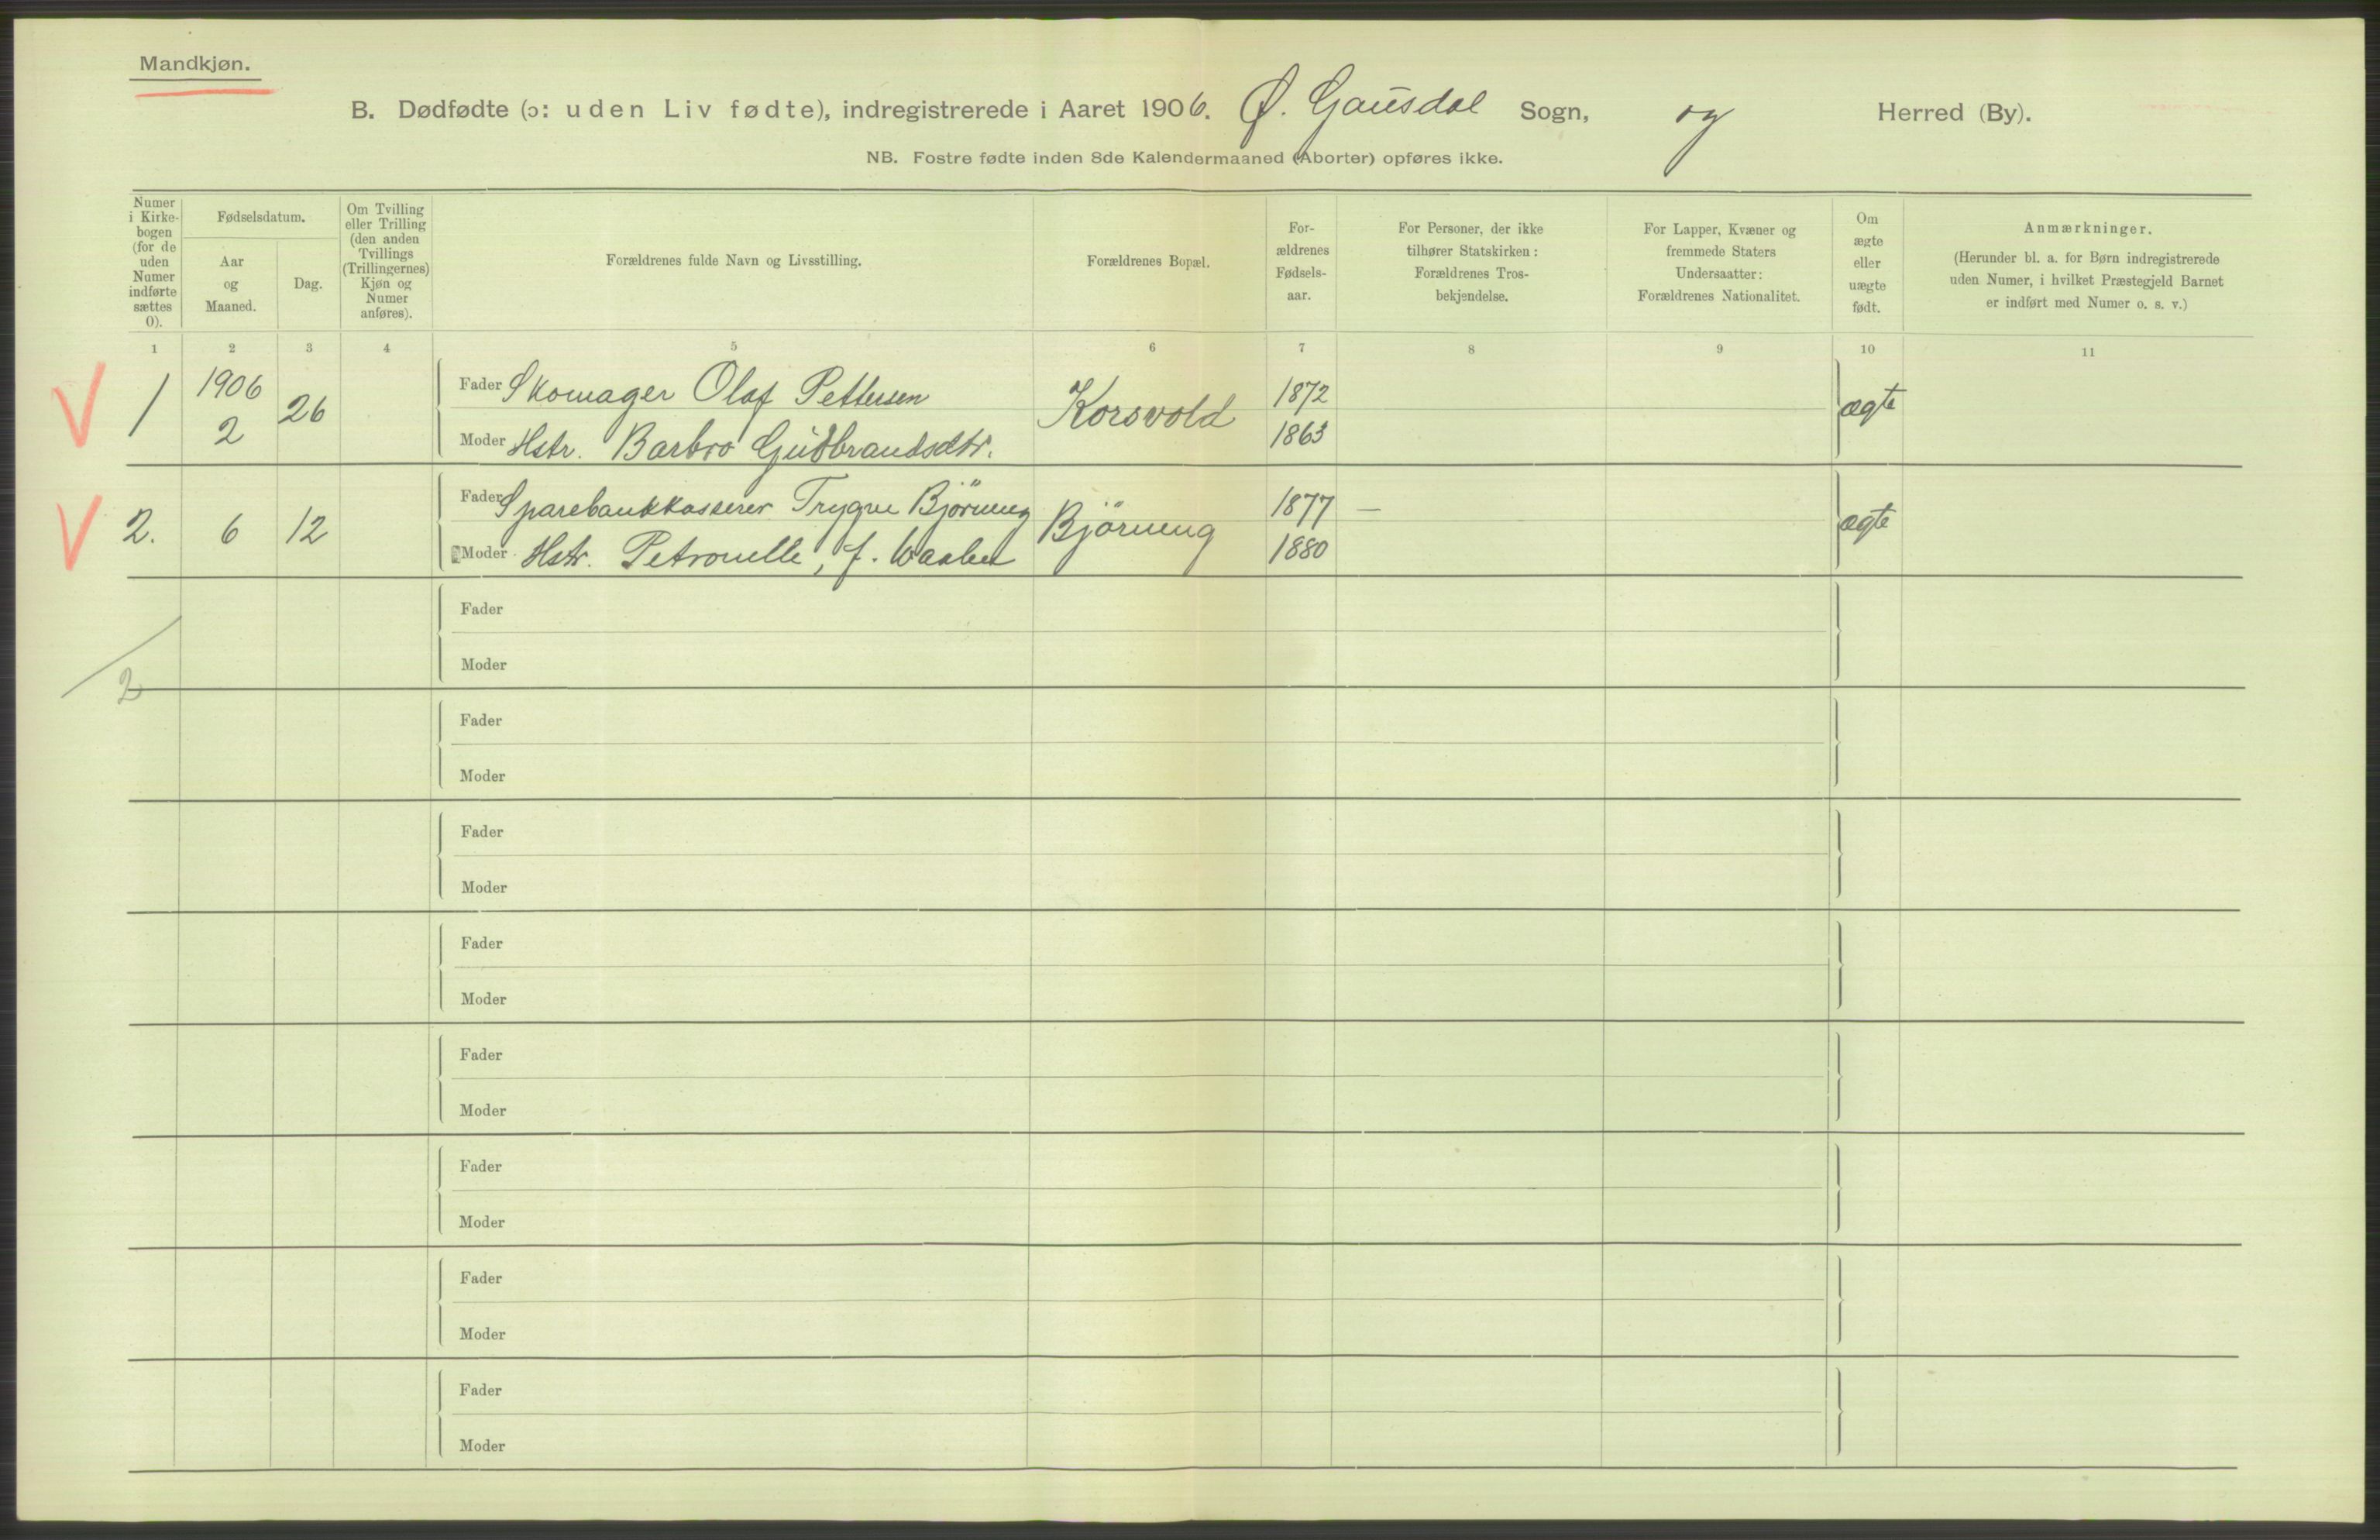 Mandkjøn.
B. Dødfødte (ɔ: uden Liv fødte), indregistrerede i Aaret 1906. Ø. Gausdal Sogn, og Herred (By).
NB. Fostre fødte inden 8de Kalendermaaned (Aborter) opføres ikke.
Numer
i Kirke-
bogen
(for de
uden
Numer
indførte
sættes
0).
Fødselsdatum.
Aar
og
Maaned.
Dag.
Om Tvilling
eller Trilling
(den anden
Tvillings
(Trillingernes)
Kjøn og
Numer
anføres).
Forældrenes fulde Navn og Livsstilling.
Forældrenes Bopæl.
For-
ældrenes
Fødsels-
aar.
For Personer, der ikke
tilhører Statskirken:
Forældrenes Tros-
bekjendelse.
For Lapper, Kvæner og
fremmede Staters
Undersaatter:
Forældrenes Nationalitet.
Om
ægte
eller
uægte
født.
Anmærkninger.
(Herunder bl. a. for Børn indregistrerede
uden Numer, i hvilket Præstegjeld Barnet
er indført med Numer o. s. v.)
1 2 3 4 5 6 7 8 9 10 11
1 1906 2 26 Fader Skomager Olaf Pettersen Korsvold 1872 ægte
Moder Hstr. Barbro Gudbrandsdtr. 1863
2. 6 12 Fader Sparebankkasserer Trygve Björneng Björneng 1877 — ægte
Moder Hstr. Petronelle, f. Waalen 1880
Fader
Moder
2
Fader
Moder
Fader
Moder
Fader
Moder
Fader
Moder
Fader
Moder
Fader
Moder
Fader
Moder